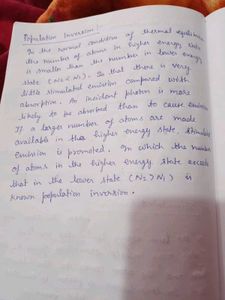 Population Inversion :-
In the normal condition of thermal equilibrium
the number of atoms in higher energy state
is smaller than the number in lower energy
state (N2 < N1). So that there is very
little stimulated emission compared with
absorption. An incident photon is more
likely to be absorbed than to cause emission
If a larger number of atoms are made
available in the higher energy state, stimulated
emission is promoted. In which the number
of atoms in the higher energy state exceeds
that in the lower state (N2 > N1) is
known population inversion.